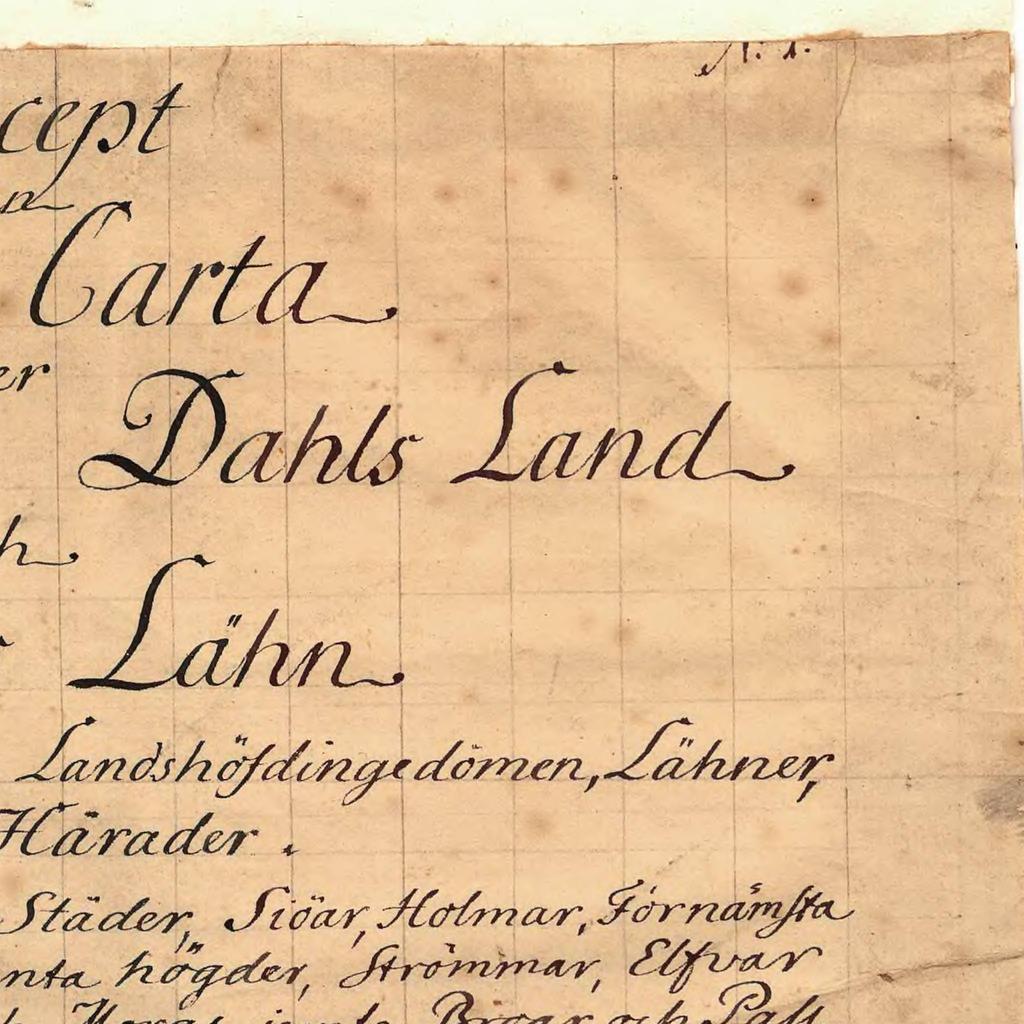 N. 1.
cept
n
Carta
er
Dahls Land
h
Lähn
Landshöfdingedömen, Lähner,
Härader.
Städer, Siöar, Holmar, Förnämsta
nta högder, Strömmar, Elfvar
Broar och Pass